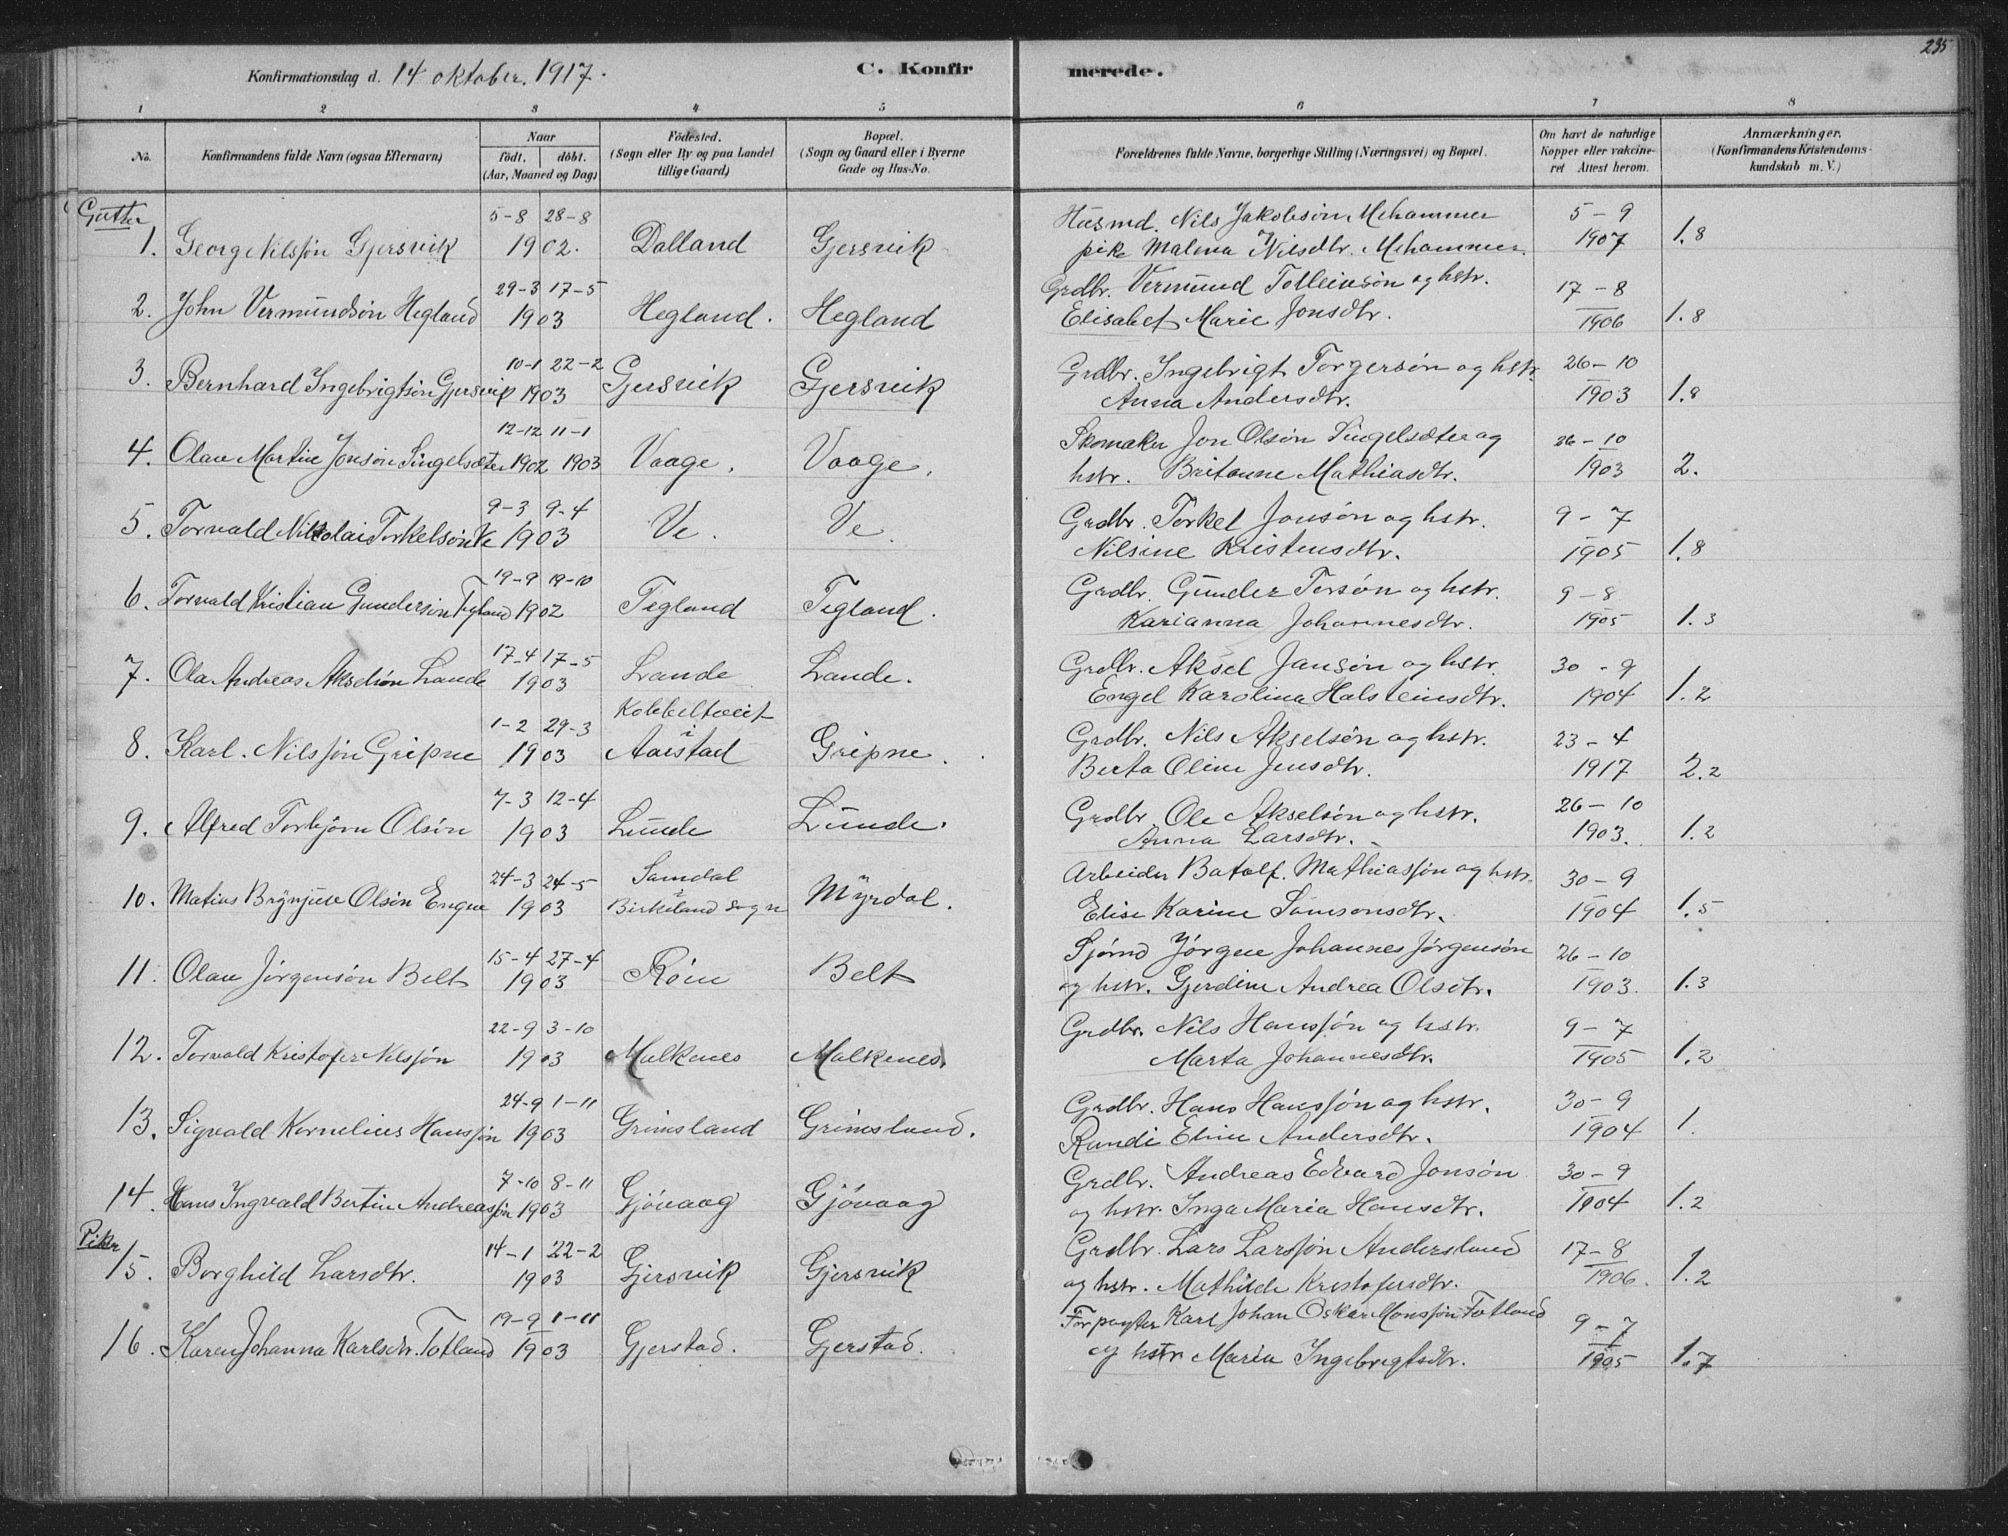 235
Konfirmationsdag d. 14 oktober. 1917.
C. Konfir merede.
1 2 3 4 5 6 7 8
No. Konfirmandens fulde Navn (ogsaa Efternavn) Naar födt. döbt. (Aar, Maaned og Dag) Födested. (Sogn eller By og paa Landet tillige Gaard) Bopæl. (Sogn og Gaard eller i Byerne Gade og Hus-No. Forældrenes fulde Navne, borgerlige Stilling (Næringsvei) og Bopæl. Om havt de naturlige Kopper eller vakcineret Attest herom. Anmærkninger. (Konfirmandens Kristendomskundskab m. V.)
Gutter
5-8 28-8 Husmd. Nils Jakobsön Mehammer 5-9
1. Georg Nilssön Gjersvik 1902. Dalland Gjersvik pike Malena Nilsdtr. Mehammer. 1907 1.8
29-3 17-5 Grdbr. Vermund Tolleivsön og hstr. 17-8
2. John Vermundsön Hegland 1903 Hegland. Hegland Elisabet Marie Jonsdtr. 1906 1.8
10-1 22-2 Grdbr. Ingebrigt Torgersön og hstr. 26-10
3. Bernhard Ingebrigtsön Gjersvik 1903 Gjersvik Gjersvik Anna Andersdtr. 1903 1.8
12-12 11-1 Skomaker Jon Olsön Singelsæter og 26-10
4. Olav Martin Jonsön Singelsæter 1902 1903 Vaage. Vaage. hstr. Britanne Mathiasdtr. 1903 2.
9-3 9-4 Grdbr. Torkel Jonsön og hstr. 9-7
5. Torvald Nikolai Torkelsön Ve 1903 Ve. Ve. Nilsine Kristensdtr. 1905 1.8
19-9 19-10 Grdbr. Gunder Torsön og hstr. 9-8
6. Torvald Kristian Gundersön Tegland 1902 Tegland Tegland. Karianna Johannesdtr. 1905 1.3
17-4 17-5 Grdbr. Aksel Jansön og hstr. 30-9
7. Ola Andreas Akselsön Lande 1903 Lande Lande. Engel Karolina Halsteinsdtr. 1904 1.2
1-2 29-3 Kobbeltveit i Grdbr. Nils Akselsön og hstr. 23-4
8. Karl. Nilssön Gripne 1903 Aarstad Gripne. Berta Oline Jensdtr. 1917 2.2
7-3 12-4 Grdbr. Ole Akselsön og hstr. 26-10
9. Alfred Torbjörn Olsön 1903 Lunde Lunde. Anna Larsdtr. 1903. 1.2
24-3 24-5 Samdal i Arbeider Batolf. Mathiassön og hstr. 30-9
10. Matias Brynjulv Olsön Engen 1903 Birkeland sogn Myrdal. Elise Karine Samsonsdtr. 1904 1.5
15-4 27-4 Sjömd Jörgen Johannes Jörgensön 26-10
11. Olav Jörgensön Belt 1903 Röen Belt og hstr. Gjerdine Andrea Olsdtr. 1903. 1.3
22-9 3-10 Grdbr. Nils Hanssön og hstr. 9-7
12. Torvald Kristofer Nilssön 1903 Malkenes Malkenes. Marta Johannesdtr. 1905 1.2
24-9 1-11 Grdbr. Hans Hanssön og hstr. 30-9
13. Sigvald Kornelius Hanssön 1903 Grimsland Grimsland. Randi Eline Andersdtr. 1904 1.
7-10 8-11 Grdbr. Andreas Edvard Jonsön 30-9
14. Hans Ingvald Bertin Andreassön 1903 Gjövaag Gjövaag og hstr. Inga Maria Hansdtr. 1904 1.2
Piker
14-1 22-2 Grdbr. Lars Larssön Andersland 17-8
15. Borghild Larsdtr. 1903 Gjersvik Gjersvik og hstr. Mathilde Kristofersdtr. 1906. 1.2
19-9 1-11 Forpagter Karl Johan Oskar Monssön Totland 9-7
16. Karen Johanna Karlsdtr. Totland 1903 Gjerstad. Gjerstad. og hstr Maria Ingebrigtsdtr. 1905 1.7